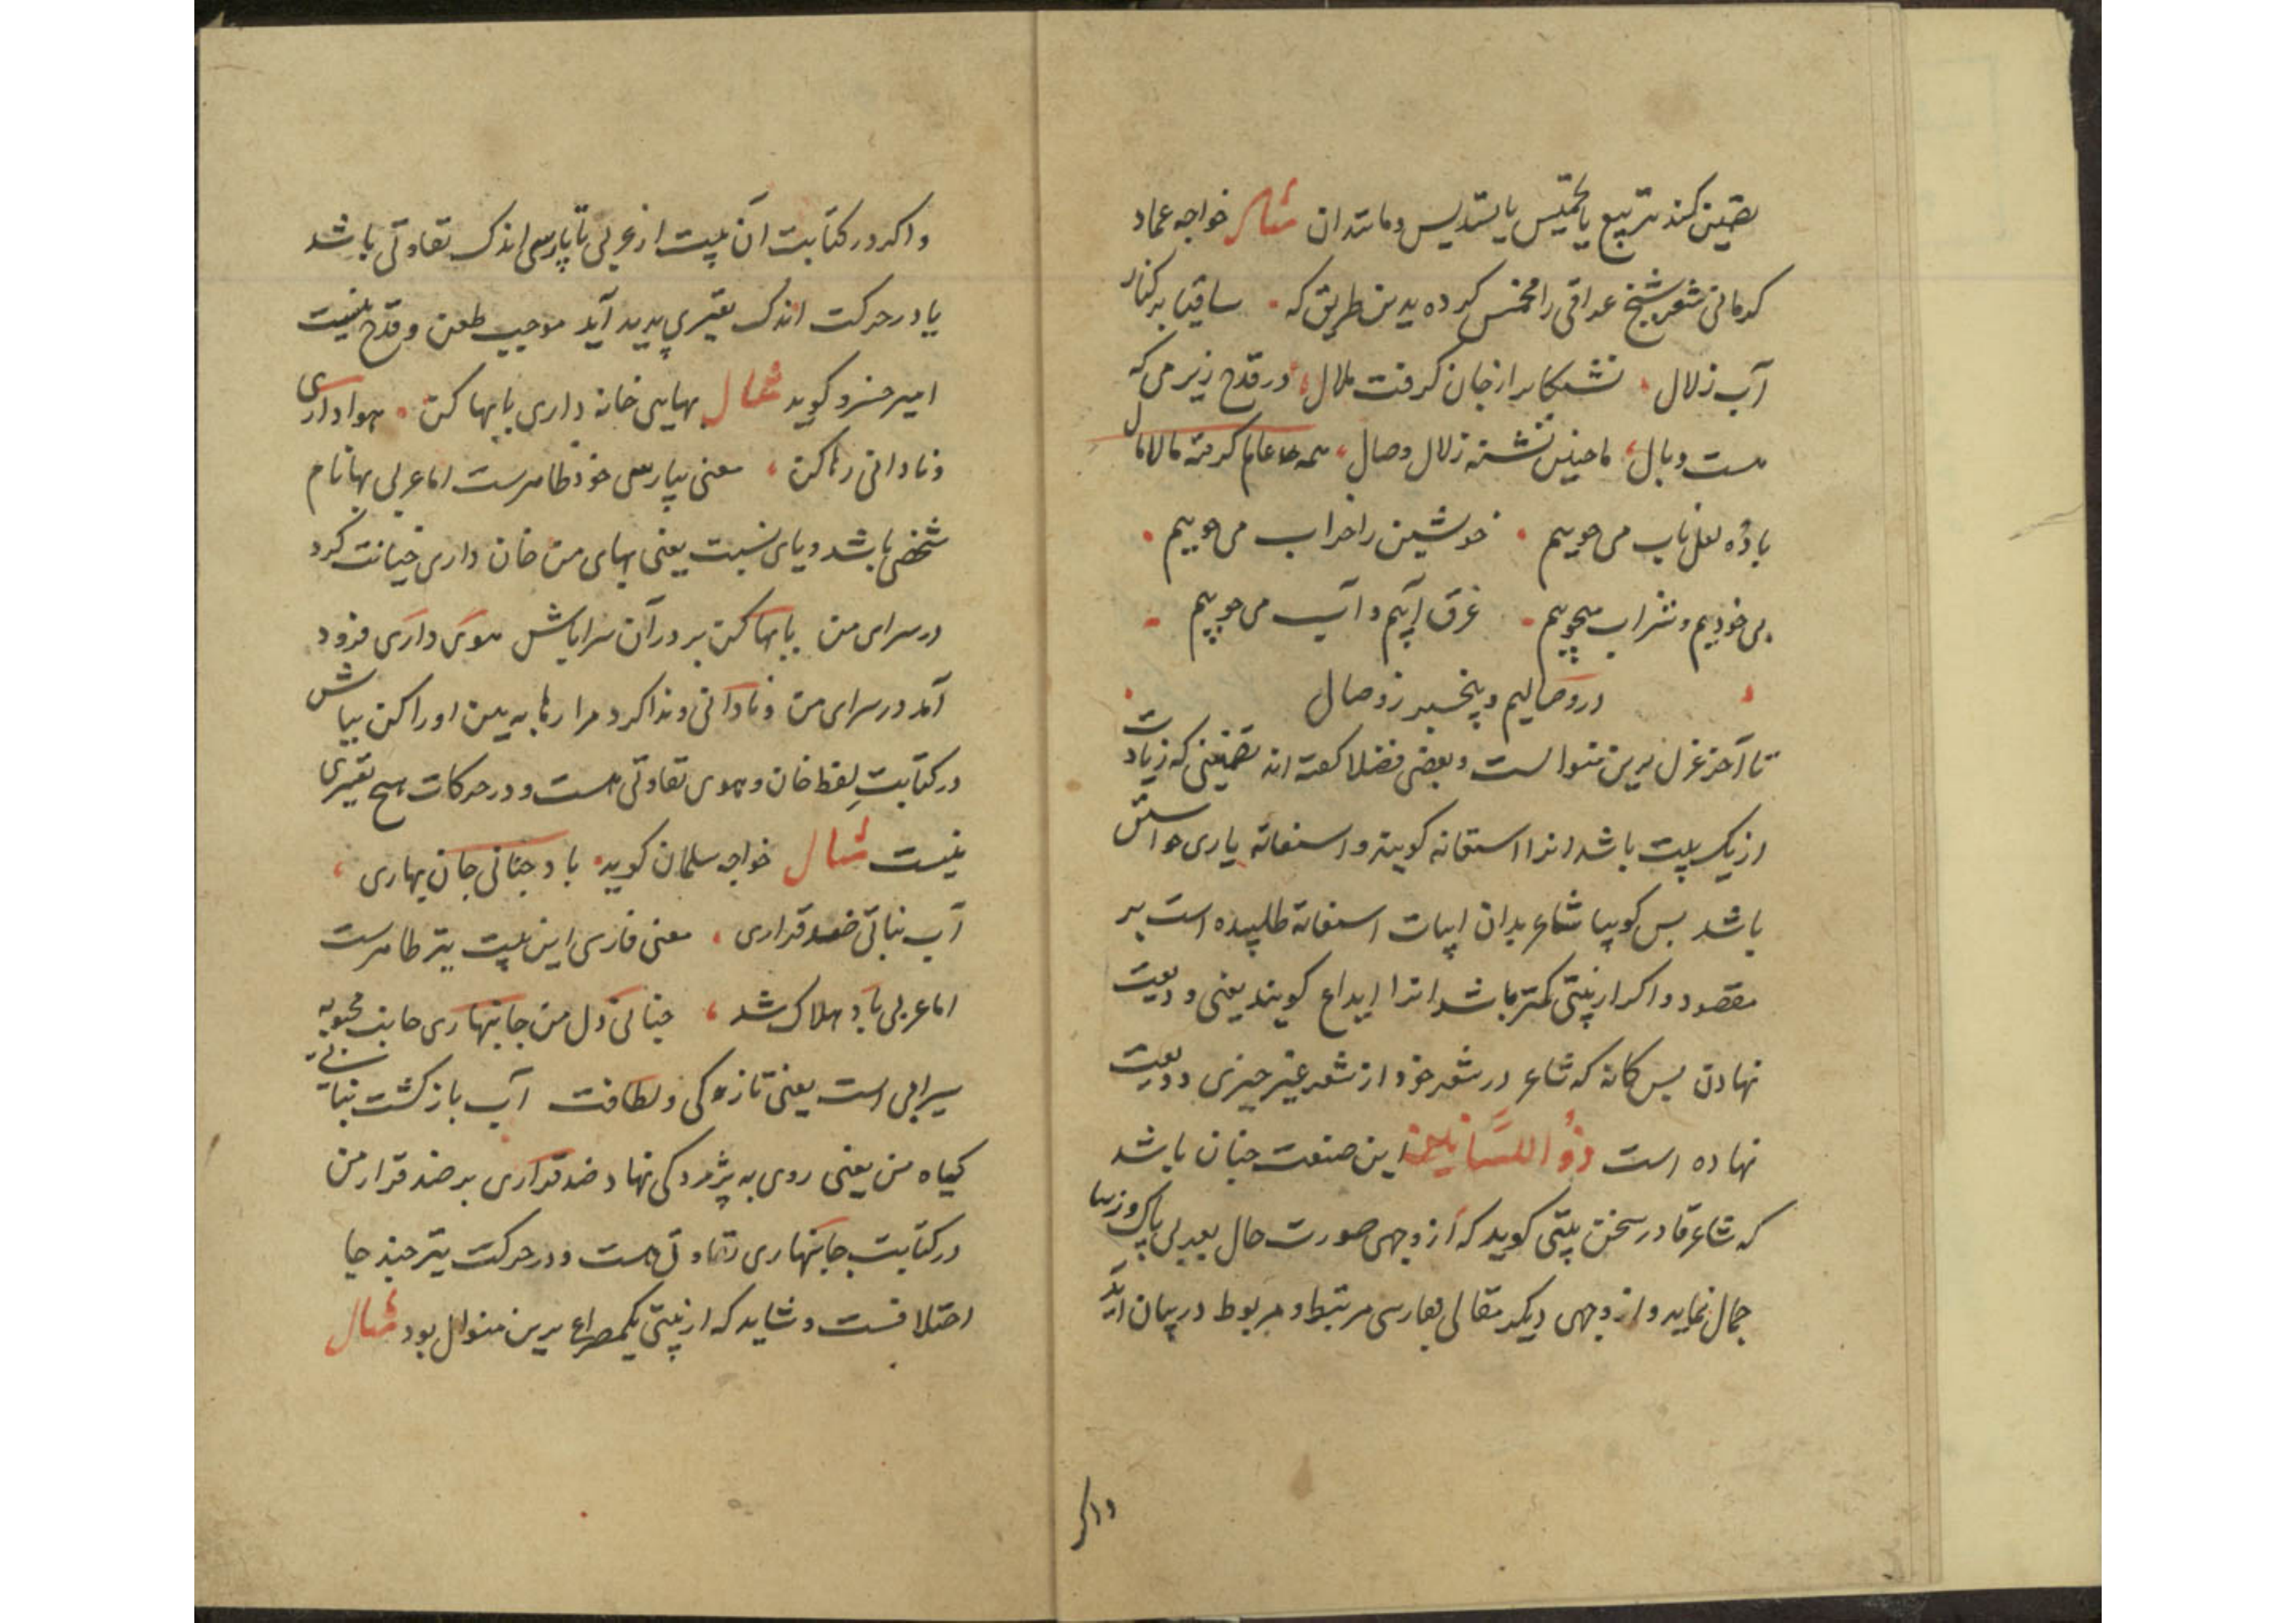 تضمین کند بتربیع یا تخمیس یا تسدیس و مانند ان مثال خواجه عماد
کرمانی شعر شیخ عراقی را مخمس کرده بدین طریق که ساقیا بر کنار
آب زلال تشنکانرا ز جان کرفت ملال در قدح ریز می که
هست وبال ما چنین تشنه زلال وصال همه عالم کرفته مالامال
باده لعل ناب می جوییم خویشتن را خراب می جوییم
بی خودیم و شراب میجوییم غرق آبیم و آب می جوییم
در وصالیم و بیخبر ز وصال
تا آخر غزل برین منوالست و بعضی فضلا کفته اند تضمینی که زیادت
از یک بیت باشد انرا استعانه کویند و استعانة یاری خواستن
باشد پس کوییا شاعر بدان ابیات استعانة طلبیده است بر
مقصود و اکر از بیتی کمتر باشد انرا ایداع کویند یعنی ودیعت
نهادن پس کانه که شاعر در شعر خود از شعر غیر چیزی ودیعت
نهاده است ذو اللسانین این صنعت چنان باشد
که شاعر قادر سخن بیتی کوید که از وجهی صورت حال بعربی پاک و زیبا
جمال نماید و از وجهی دیکر مقالی بفارسی مرتبط و مربوط در بیان آید
واکر
واکر در کتابت آن بیت از عربی تا پارسی اندک تفاوتی باشد
یا در حرکت اندک تغییری پدید آید موجب طعن و قدح نیست
امیر خسرو کوید مثال بهایی خانه داری بابها کن هواداری
و نادانی رها کن معنی پارسی خود ظاهرست اما عربی بها نام
شخصی باشد و یای نسبت یعنی بهای من خان داری خیانت کرد
در سرای من بابها کن بر در آن سرا باش هوی داری فرود
آمد در سرای من و نادانی و ندا کرد مرا رها به بین او را کن بباش
در کتابت لفظ خان و هوی تفاوتی هست و در حرکات هیچ تغییری
نیست مثال خواجه سلمان کوید باد جنانی جان بهاری
آب نباتی ضد قراری معنی فارسی این بیت نیز ظاهرست
اما عربی باد هلاک شد جنانی دل من جانبهاری جانب محبوبه
سیرابی است یعنی تازه کی و لطافت آب باز کشت نباتی
کیاه من یعنی روی به پژمردکی نهاد ضد قراری بر ضد قرار من
در کتابت جانبهاری تفاوتی هست و در حرکت نیز چند جا
اختلافست و شاید که از بیتی یکمصراع برین منوال بود مثال